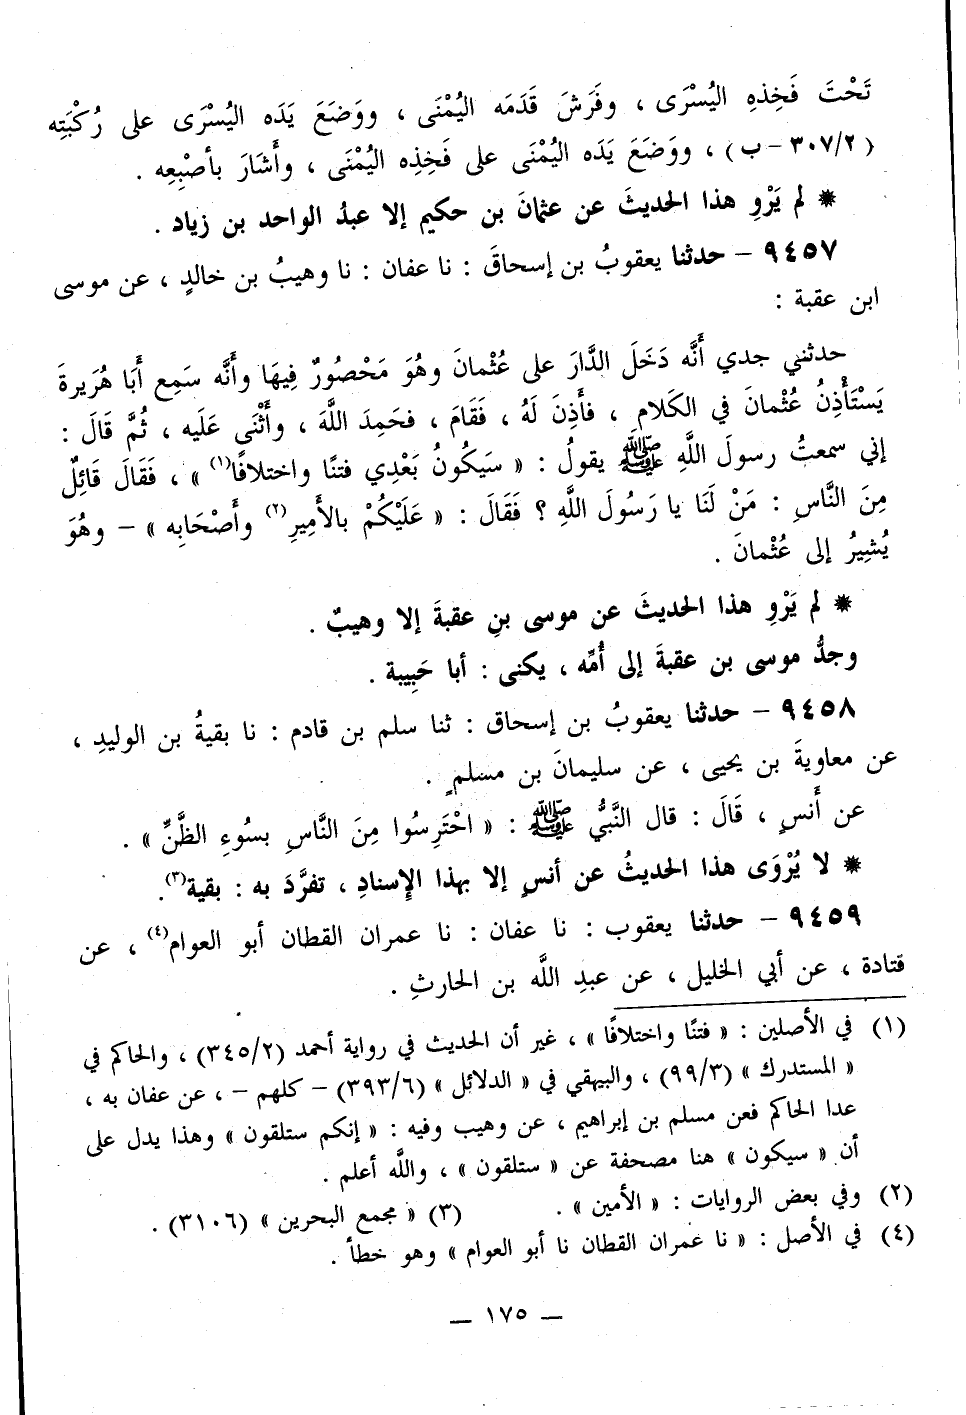 تَحْتَ فَخِذهِ اليُسْرَى ، وفَرَشَ قَدَمَه اليُمْنَى ، ووَضَعَ يَدَه اليُسْرَى على رُكْبَتِه
( ٣٠٧/٢ - ب ) ، ووَضَعَ يَدَه اليُمْنَى على فَخِذِه اليُمْنَى ، وأَشَارَ بأصْبِعِه .
* لم يَرْوِ هذا الحديثَ عن عثمانَ بن حكيم إلا عبدُ الواحد بن زياد .
٩٤٥٧ - حدثنا يعقوبُ بن إسحاقَ : نا عفان : نا وهيبُ بن خالدٍ ، عن موسى
ابن عقبة :
حدثني جدي أَنَّه دَخَلَ الدَّارَ على عُثْمانَ وهُوَ مَحْصُورٌ فِيهَا وأَنَّه سَمِع أَبَا هُرَيرةَ
يَسْتَأْذِنُ عُثْمانَ في الكَلامِ ، فأَذِنَ لَهُ ، فَقَامَ ، فحَمِدَ اللَّهَ ، وأَثْنَى عَلَيه ، ثُمَّ قَالَ :
إني سمعتُ رسولَ اللَّهِ ﷺ يقولُ : « سَيَكُونُ بَعْدِي فتنًا واختلافًا(١) » ، فَقَالَ قَائِلٌ
مِنَ النَّاسِ : مَنْ لَنَا يا رَسُولَ اللَّهِ ؟ فَقَالَ : « عَلَيْكُمْ بالأَمِيرِ(٢) وأَصْحَابِه » - وهُوَ
يُشِيرُ إلى عُثْمانَ .
* لم يَرْوِ هذا الحديثَ عن موسى بنِ عقبةَ إلا وهيبٌ .
وجدُّ موسى بن عقبةَ إلى أُمِّه ، يكنى : أبا حَبِيبة .
٩٤٥٨ - حدثنا يعقوبُ بن إسحاق : ثنا سلم بن قادم : نا بقيةُ بن الوليدِ ،
عن معاويةَ بن يحيى ، عن سليمانَ بن مسلمٍ .
عن أَنسٍ ، قَالَ : قال النَّبيُّ ﷺ : « احْتَرِسُوا مِنَ النَّاسِ بسُوءِ الظَّنِّ » .
* لا يُرْوَى هذا الحديثُ عن أنسٍ إلا بهذا الإِسنادِ ، تفرَّدَ به : بقية(٣).
٩٤٥٩ - حدثنا يعقوب : نا عفان : نا عمران القطان أبو العوام(٤) ، عن
قتادة ، عن أبي الخليل ، عن عبدِ اللَّه بن الحارثِ .
(١) في الأصلين : « فتنًا واختلافًا » ، غير أن الحديث في رواية أحمد (٣٤٥/٢) ، والحاكم في
« المستدرك » (٩٩/٣) ، والبيهقي في « الدلائل » (٣٩٣/٦) - كلهم - ، عن عفان به ،
عدا الحاكم فعن مسلم بن إبراهيم ، عن وهيب وفيه : « إنكم ستلقون » وهذا يدل على
أن « سيكون » هنا مصحفة عن « ستلقون » ، واللَّه أعلم .
(٢) وفي بعض الروايات : « الأمين » . (٣) « مجمع البحرين » (٣١٠٦) .
(٤) في الأصل : « نا عمران القطان نا أبو العوام » وهو خطأ .
— ١٧٥ —